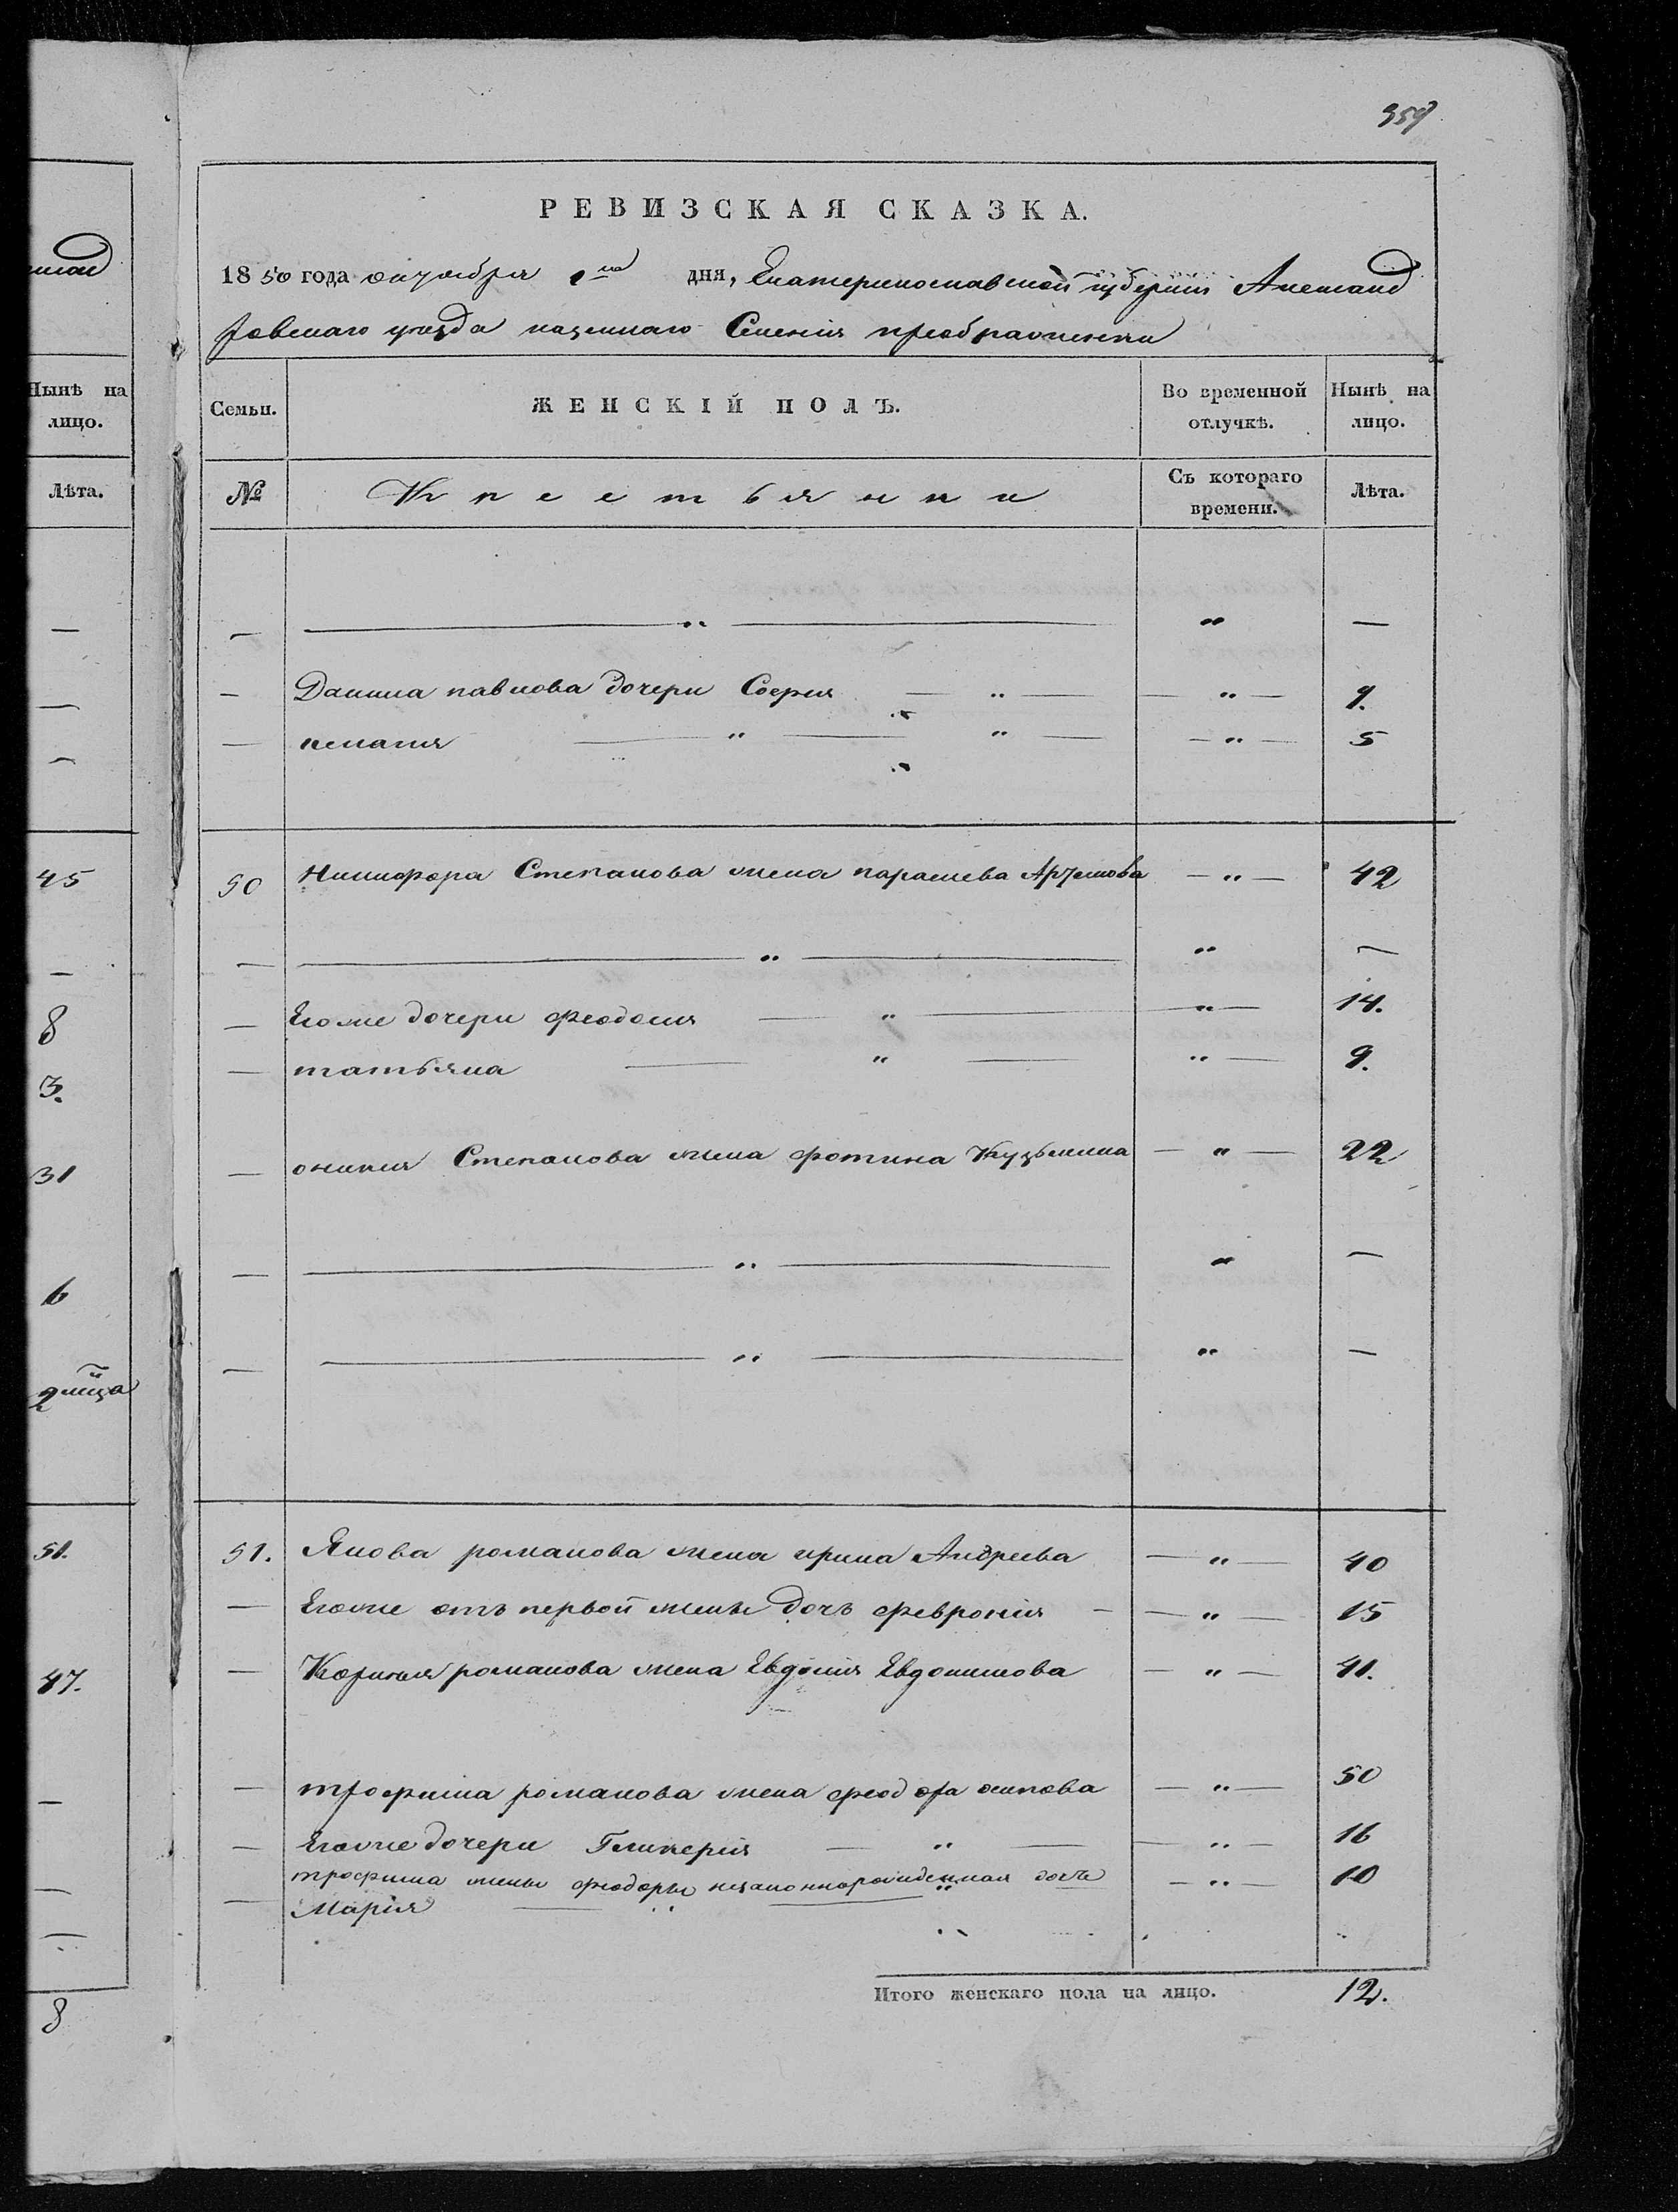 359
РЕВИЗСКАЯ СКАЗКА.
1850 года октября 1го дня, Екатеринославской губернии Александ
ровскаго уезда казеннаго Селения преображенки
Нынѣ на лицо.
Лѣта.
Семьи.
ЖЕНСКІЙ ПОЛЪ.
Во временной отлучкѣ.
Нынѣ на лицо.
№
Крестьянки
Съ котораго времени.
Лѣта.
— — " — " —
— Данила павлова дочери София — " — — " — 9.
— пелагия — " — " — — " — 5
45
50 Никифора Степанова жена параскева Артемова — " — 42
— — " — " —
8
— Егоже дочери феодосия — " — " — 14.
3.
— татьяна — " — " — 9.
31
— оникия Степанова жена фотина Кузьмина — " — 22
6
— — " — " —
2 мца
— — " — " —
51.
51. Якова романова жена ирина Андреева — " — 40
— Егоже отъ первой жены дочь феврония — — " — 15
47.
— Корнилия романова жена Евдокия Евдокимова — " — 41.
— трофима романова жена феодора осипова — " — 50
— Егоже дочери Гликерія — " — — " — 16
трофима жены феодоры незаконнорожденная дочь — " — 10
— Марія — " — "
8
Итого женскаго пола на лицо. 12.